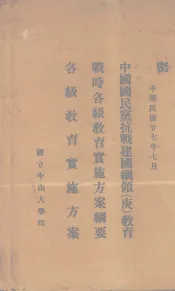 中華民國廿七年七月
中國國民黨抗戰建國綱領(庚)教育
戰時各級教育實施方案綱要
各級教育實施方案
國立中山大學印